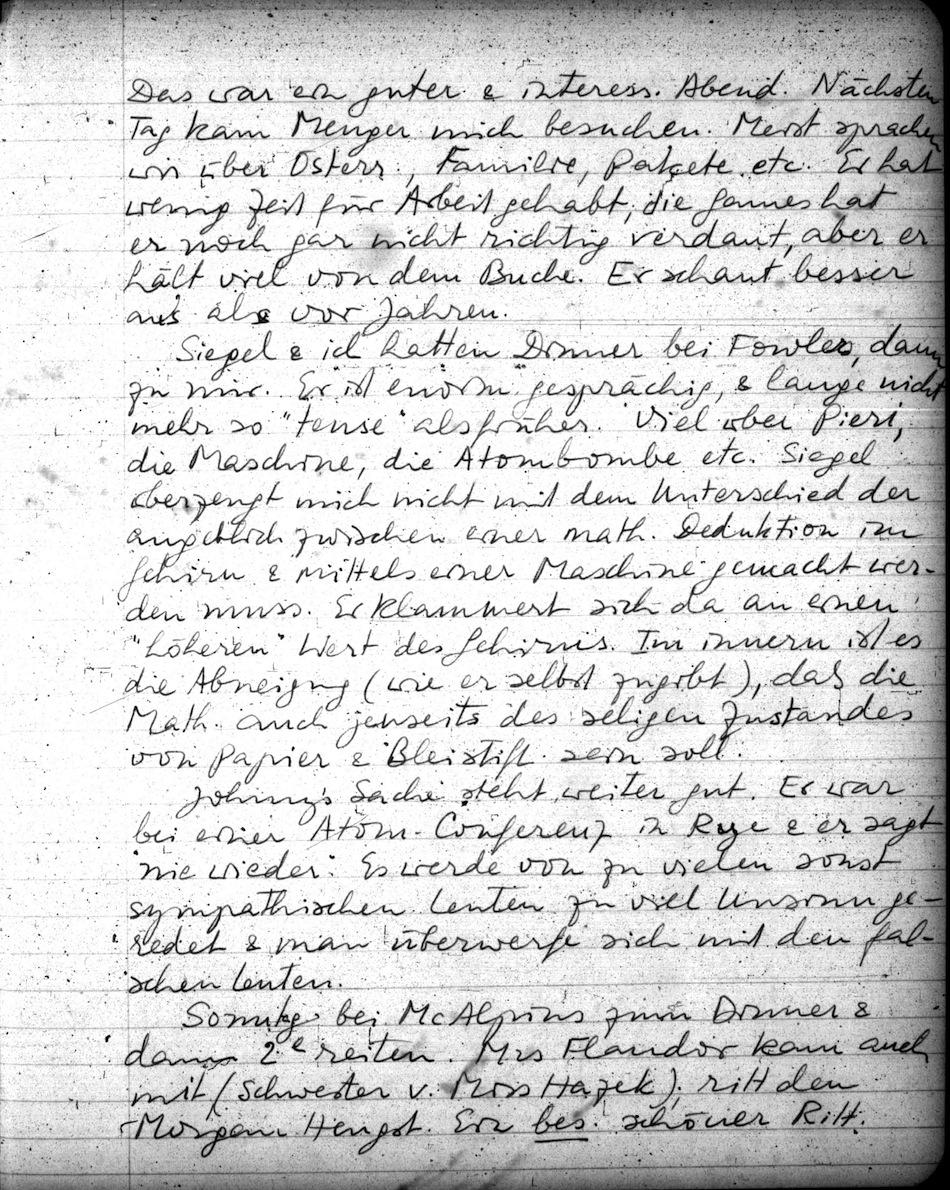 Das war ein guter & interess. Abend. Nächsten
Tag kam Menger mich besuchen. Meist sprachen
wir über Österr., Familie, Pakete etc. Er hat
wenig Zeit für Arbeit gehabt; die Games hat
er noch gar nicht richtig verdaut, aber er
hält viel von dem Buche. Er schaut besser
aus als vor Jahren.
Siegel & ich hatten Dinner bei Fowler, dann
zu mir. Er ist "enorm" gesprächig, & lange nicht
mehr so "tense" als früher. Viel über Pieri,
die Maschine, die Atombombe etc. Siegel
überzeugt mich nicht mit dem Unterschied der
angeblich zwischen einer math. Deduktion im
Gehirn & mittels einer Maschine gemacht wer-
den muss. Er klammert sich da an einen
"höheren" Wert des Gehirns. Im innern ist es
die Abneigung (wie er selbst zugibt), daß die
Math. auch jenseits des seligen Zustandes
von Papier & Bleistift sein soll.
Johnny's Sache steht weiter gut. Er war
bei einer Atom-Conferenz in Rye & er sagt
"nie wieder". Es werde von zu vielen sonst
sympathischen Leuten zu viel Unsinn ge-
redet & man überwerfe sich mit den fal-
schen Leuten.
Sonntag bei McAlpins zum Dinner &
dann 2e reiten. Mrs Flandor kam auch
mit (Schwester v. Miss Hazek); ritt den
Morgan Hengst. Ein bes. schöner Ritt.